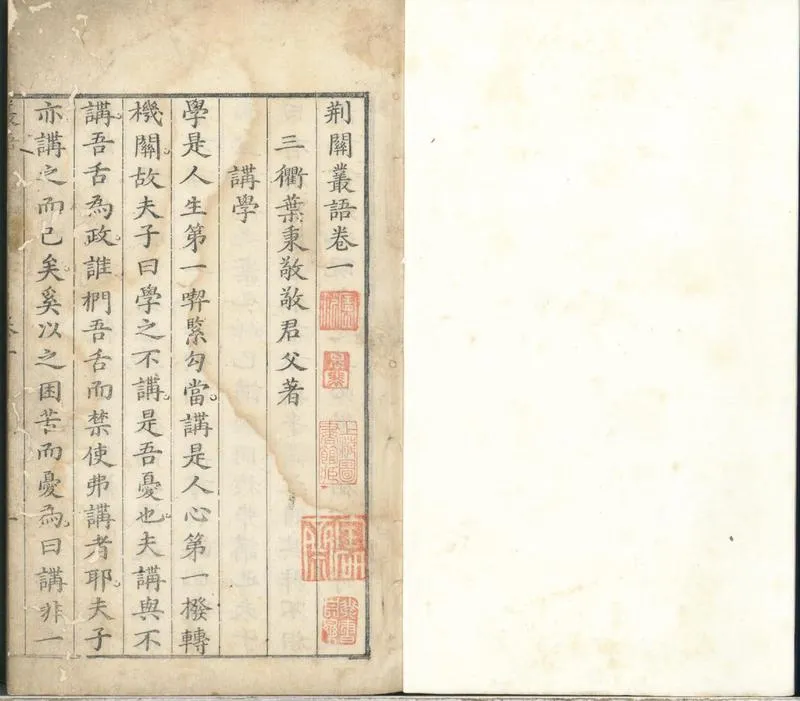 荆關叢語卷一
三衢葉秉敬敬君父著
講學
學是人生第一喫緊勾當講是人心第一撥轉
機關故夫子曰學之不講是吾憂也夫講與不
講吾舌為政誰捫吾舌而禁使弗講者耶夫子
亦講之而已矣奚以之困苦而憂為曰講非一